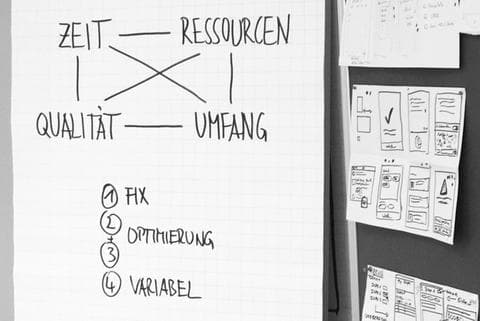 ZEIT RESSOURCEN
QUALITÄT UMFANG
1 FIX
2
+ OPTIMIERUNG
3
4 VARIABEL